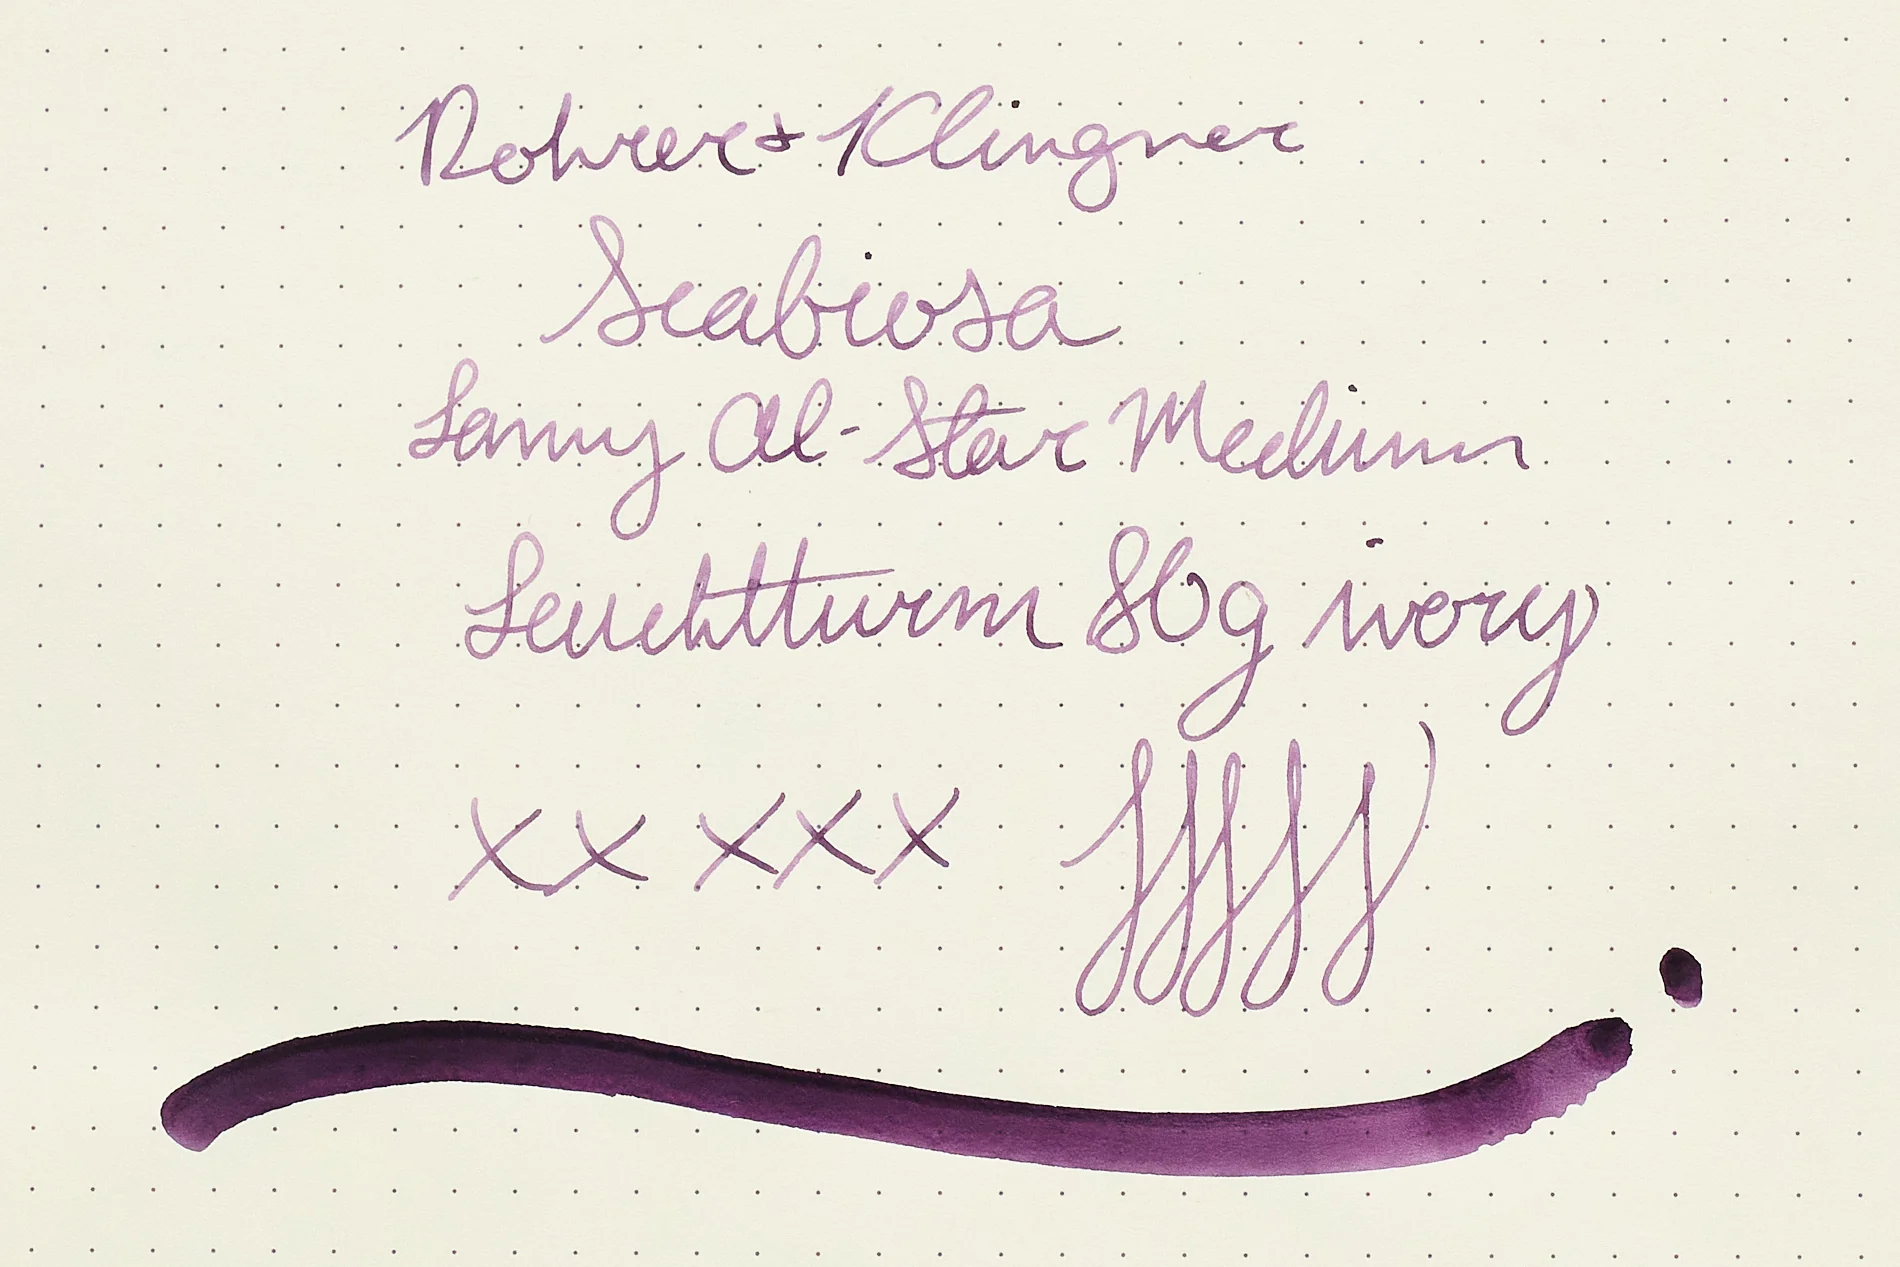 Rohrer + Klingner
Scabiosa
Lamy Al-Star Medium
Leuchtturm 80g ivory
xx xxx